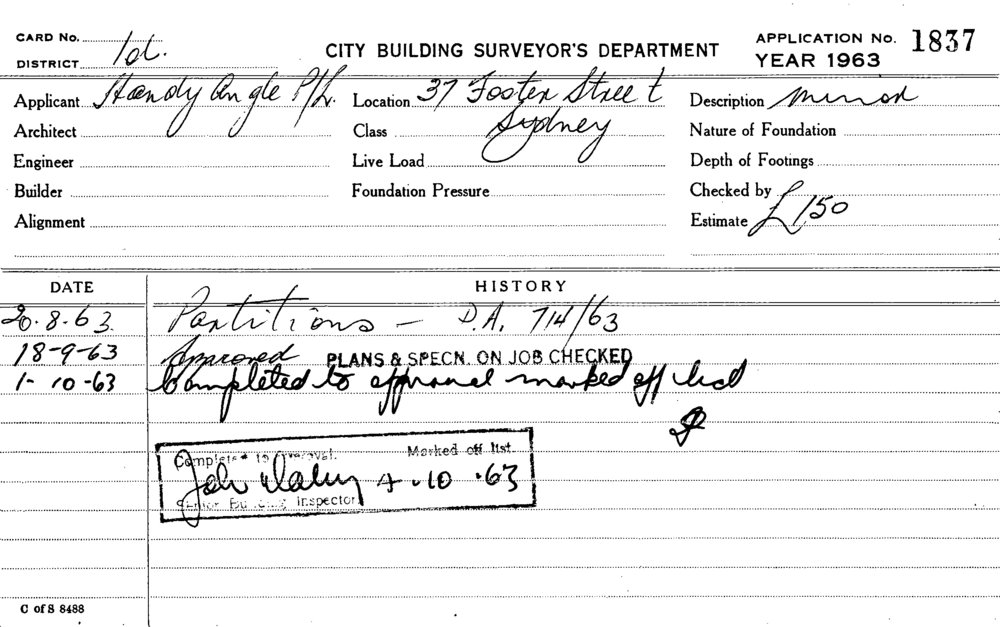 CARD No.
DISTRICT 1d.
CITY BUILDING SURVEYOR'S DEPARTMENT
APPLICATION No. 1837
YEAR 1963
Applicant Handy Angle P/L. Location 37 Foster Street Description minor
Sydney
Architect Class Nature of Foundation
Engineer Live Load Depth of Footings
Builder Foundation Pressure Checked by
Alignment Estimate £150
DATE HISTORY
20.8.63. Partitions - D.A. 714/63
18-9-63 Approved PLANS & SPECN. ON JOB CHECKED
1-10-63 Completed to approval marked off list
Completed to approval. Marked off list.
John 4.10.63
Senior Building Inspector
C of S 8488